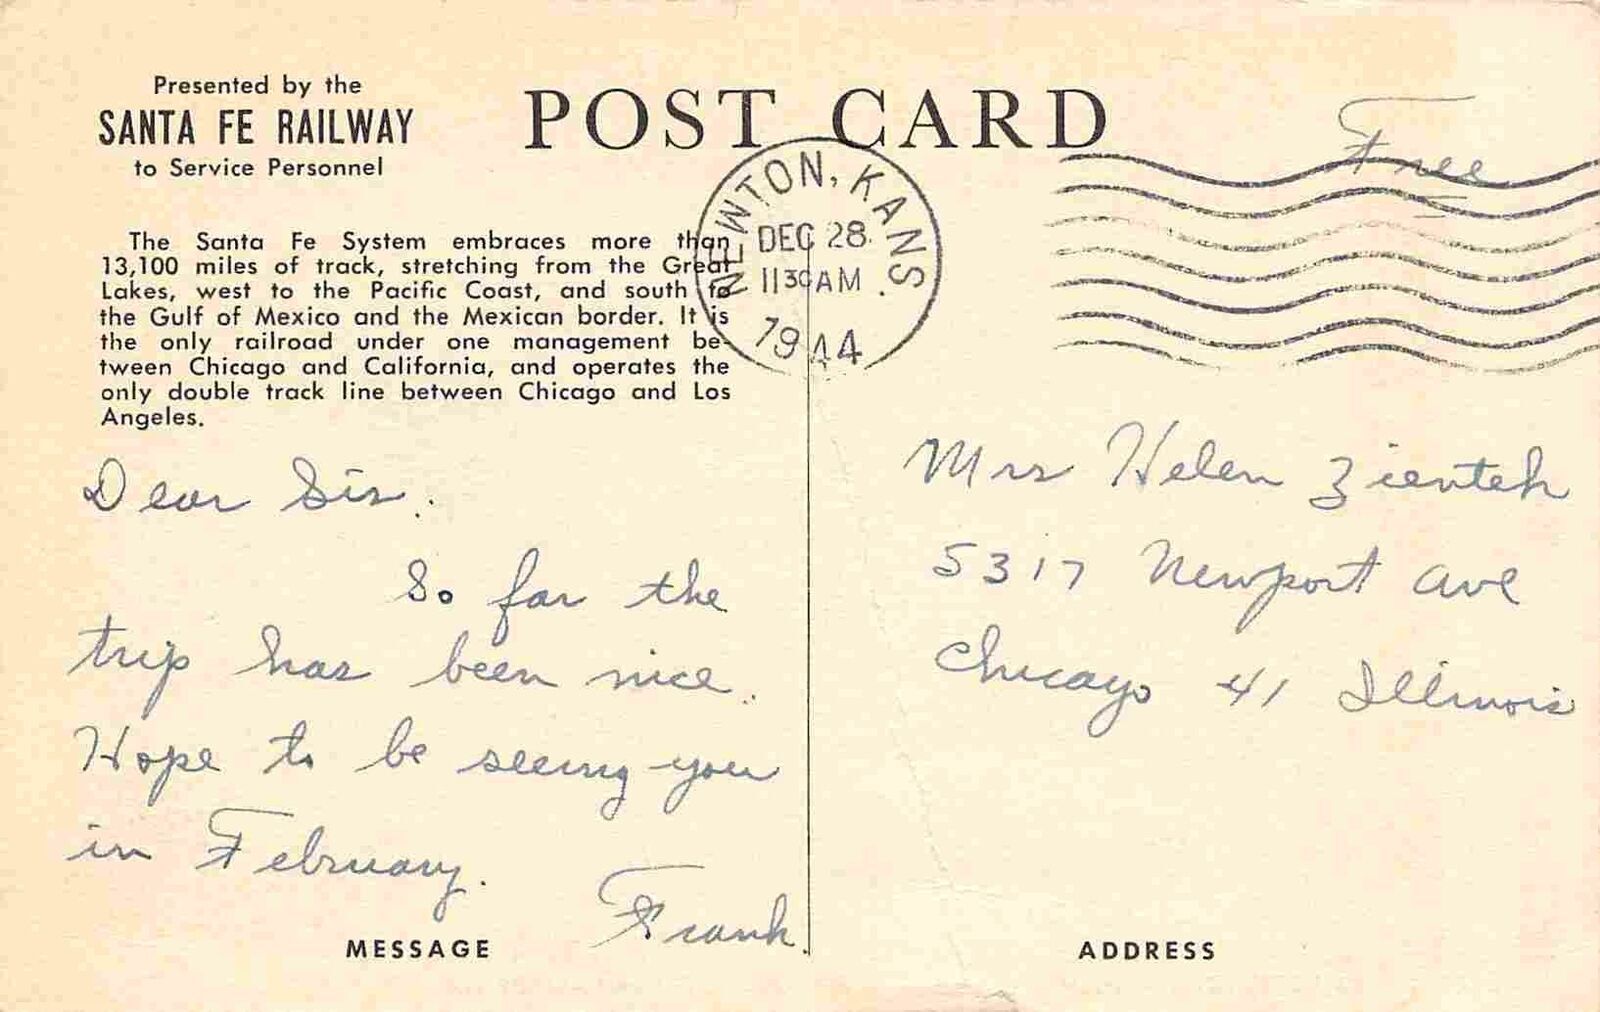 Presented by the
SANTA FE RAILWAY
to Service Personnel
POST CARD
Free
NEWTON, KANS.
DEC 28
1130AM
1944
The Santa Fe System embraces more than
13,100 miles of track, stretching from the Great
Lakes, west to the Pacific Coast, and south to
the Gulf of Mexico and the Mexican border. It is
the only railroad under one management be-
tween Chicago and California, and operates the
only double track line between Chicago and Los
Angeles.
Dear Sis.
So far the
trip has been nice.
Hope to be seeing you
in February.
Frank.
MESSAGE
Mrs Helen Zientek
5317 Newport Ave
Chicago 41 Illinois
ADDRESS